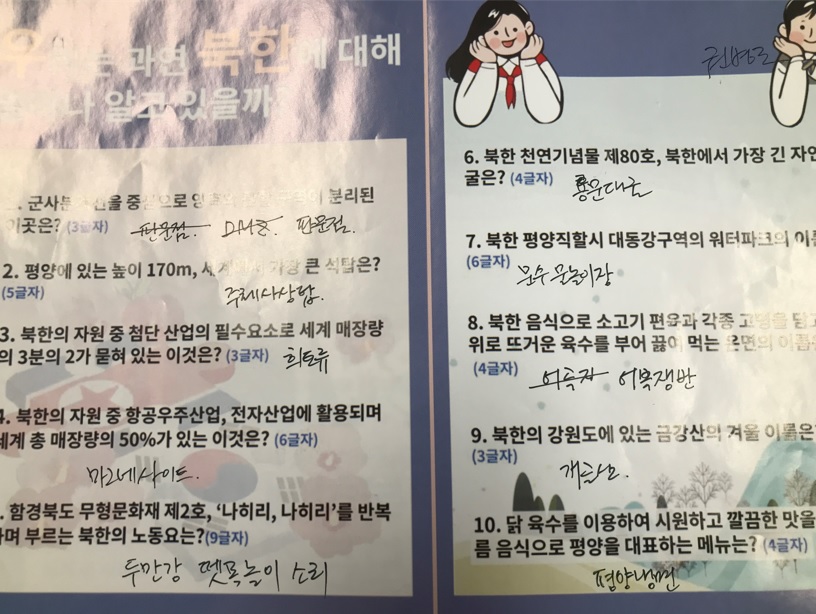 과연 북한에 대해
알고 있을까
군사분계선을 중심으로 분리된
이곳은? (3글자) 판문점. DMZ. 판문점.
2. 평양에 있는 높이 170m, 세계에서 가장 큰 석탑은?
(5글자) 주체사상탑.
3. 북한의 자원 중 첨단 산업의 필수요소로 세계 매장량
의 3분의 2가 묻혀 있는 이것은? (3글자) 희토류
4. 북한의 자원 중 항공우주산업, 전자산업에 활용되며
세계 총 매장량의 50%가 있는 이것은? (6글자)
마그네사이트.
함경북도 무형문화재 제2호, ‘나히리, 나히리’를 반복
하며 부르는 북한의 노동요는?(9글자)
두만강 뗏목놀이 소리
6. 북한 천연기념물 제80호, 북한에서 가장 긴 자연
굴은? (4글자) 룡문대굴
7. 북한 평양직할시 대동강구역의 워터파크의 이름
(6글자) 문수물놀이장
8. 북한 음식으로 소고기 편육과 각종 고명을 담고
위로 뜨거운 육수를 부어 끓여 먹는 온면의 이름은
(4글자) 어복쟁반
9. 북한의 강원도에 있는 금강산의 겨울 이름은?
(3글자) 개골산.
10. 닭 육수를 이용하여 시원하고 깔끔한 맛을
름 음식으로 평양을 대표하는 메뉴는? (4글자)
평양냉면